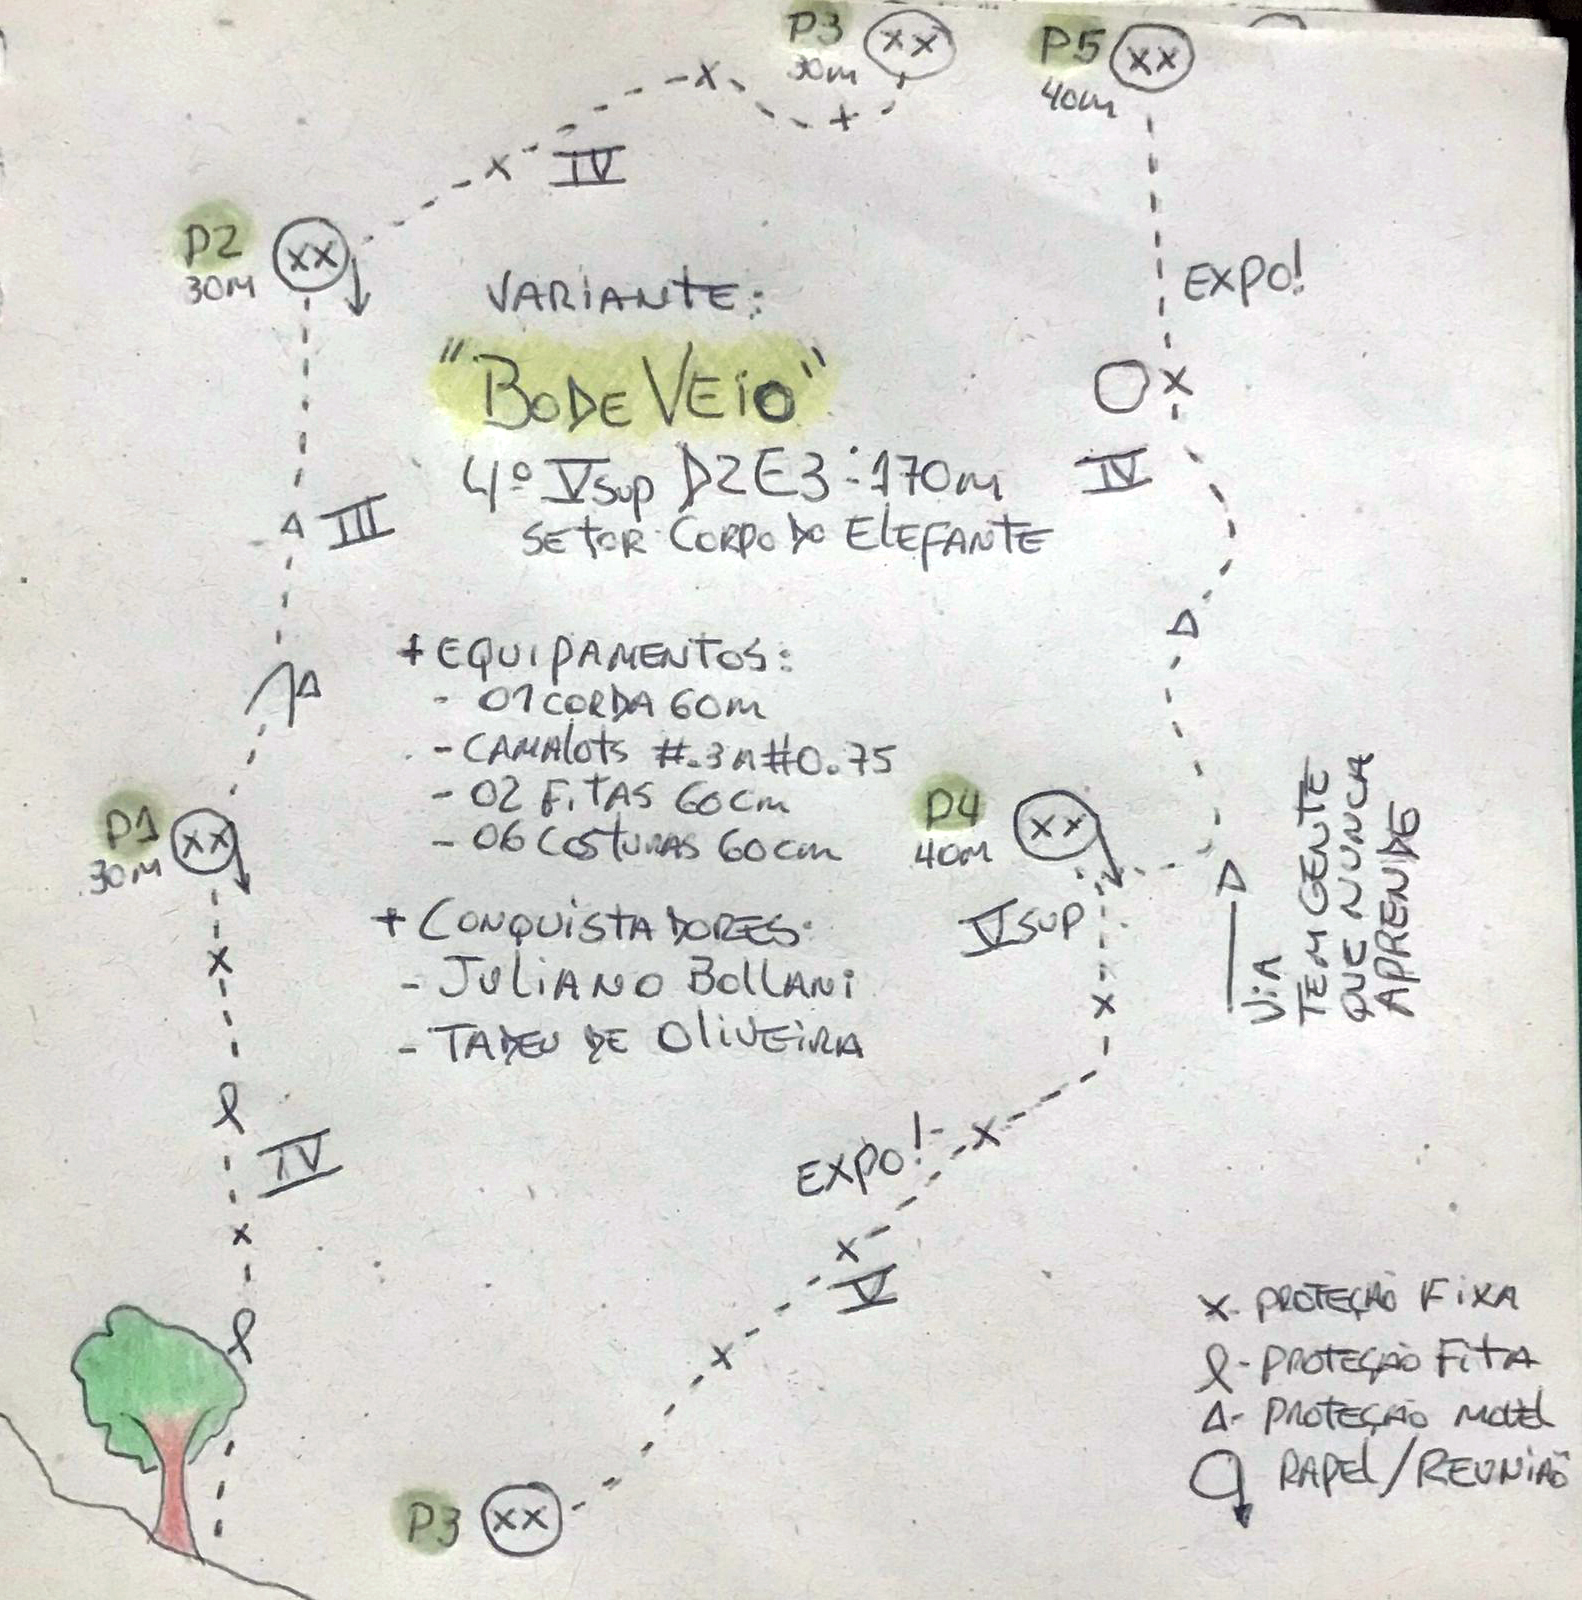 P3
30m
XX
P5
40m
XX
IV
P2
30m
XX
EXPO!
VARIANTE:
"BODE VEIO"
4º Vsup D2E3 - 170m
SETOR CORPO DO ELEFANTE
IV
III
+ EQUIPAMENTOS:
- 01 CORDA 60m
- CAMALOTS #.3 A #0.75
- 02 FITAS 60cm
- 06 COSTURAS 60cm
P1
30m
XX
P4
40m
XX
VSUP
VIA
TEM GENTE
QUE NUNCA
APRENDE
+ CONQUISTADORES:
- JULIANO BOLLANI
- TADEU DE OLIVEIRA
IV
EXPO!
V
P3
XX
X- PROTEÇÃO FIXA
- PROTEÇÃO FITA
Δ- PROTEÇÃO MOVEL
RAPEL/REUNIÃO